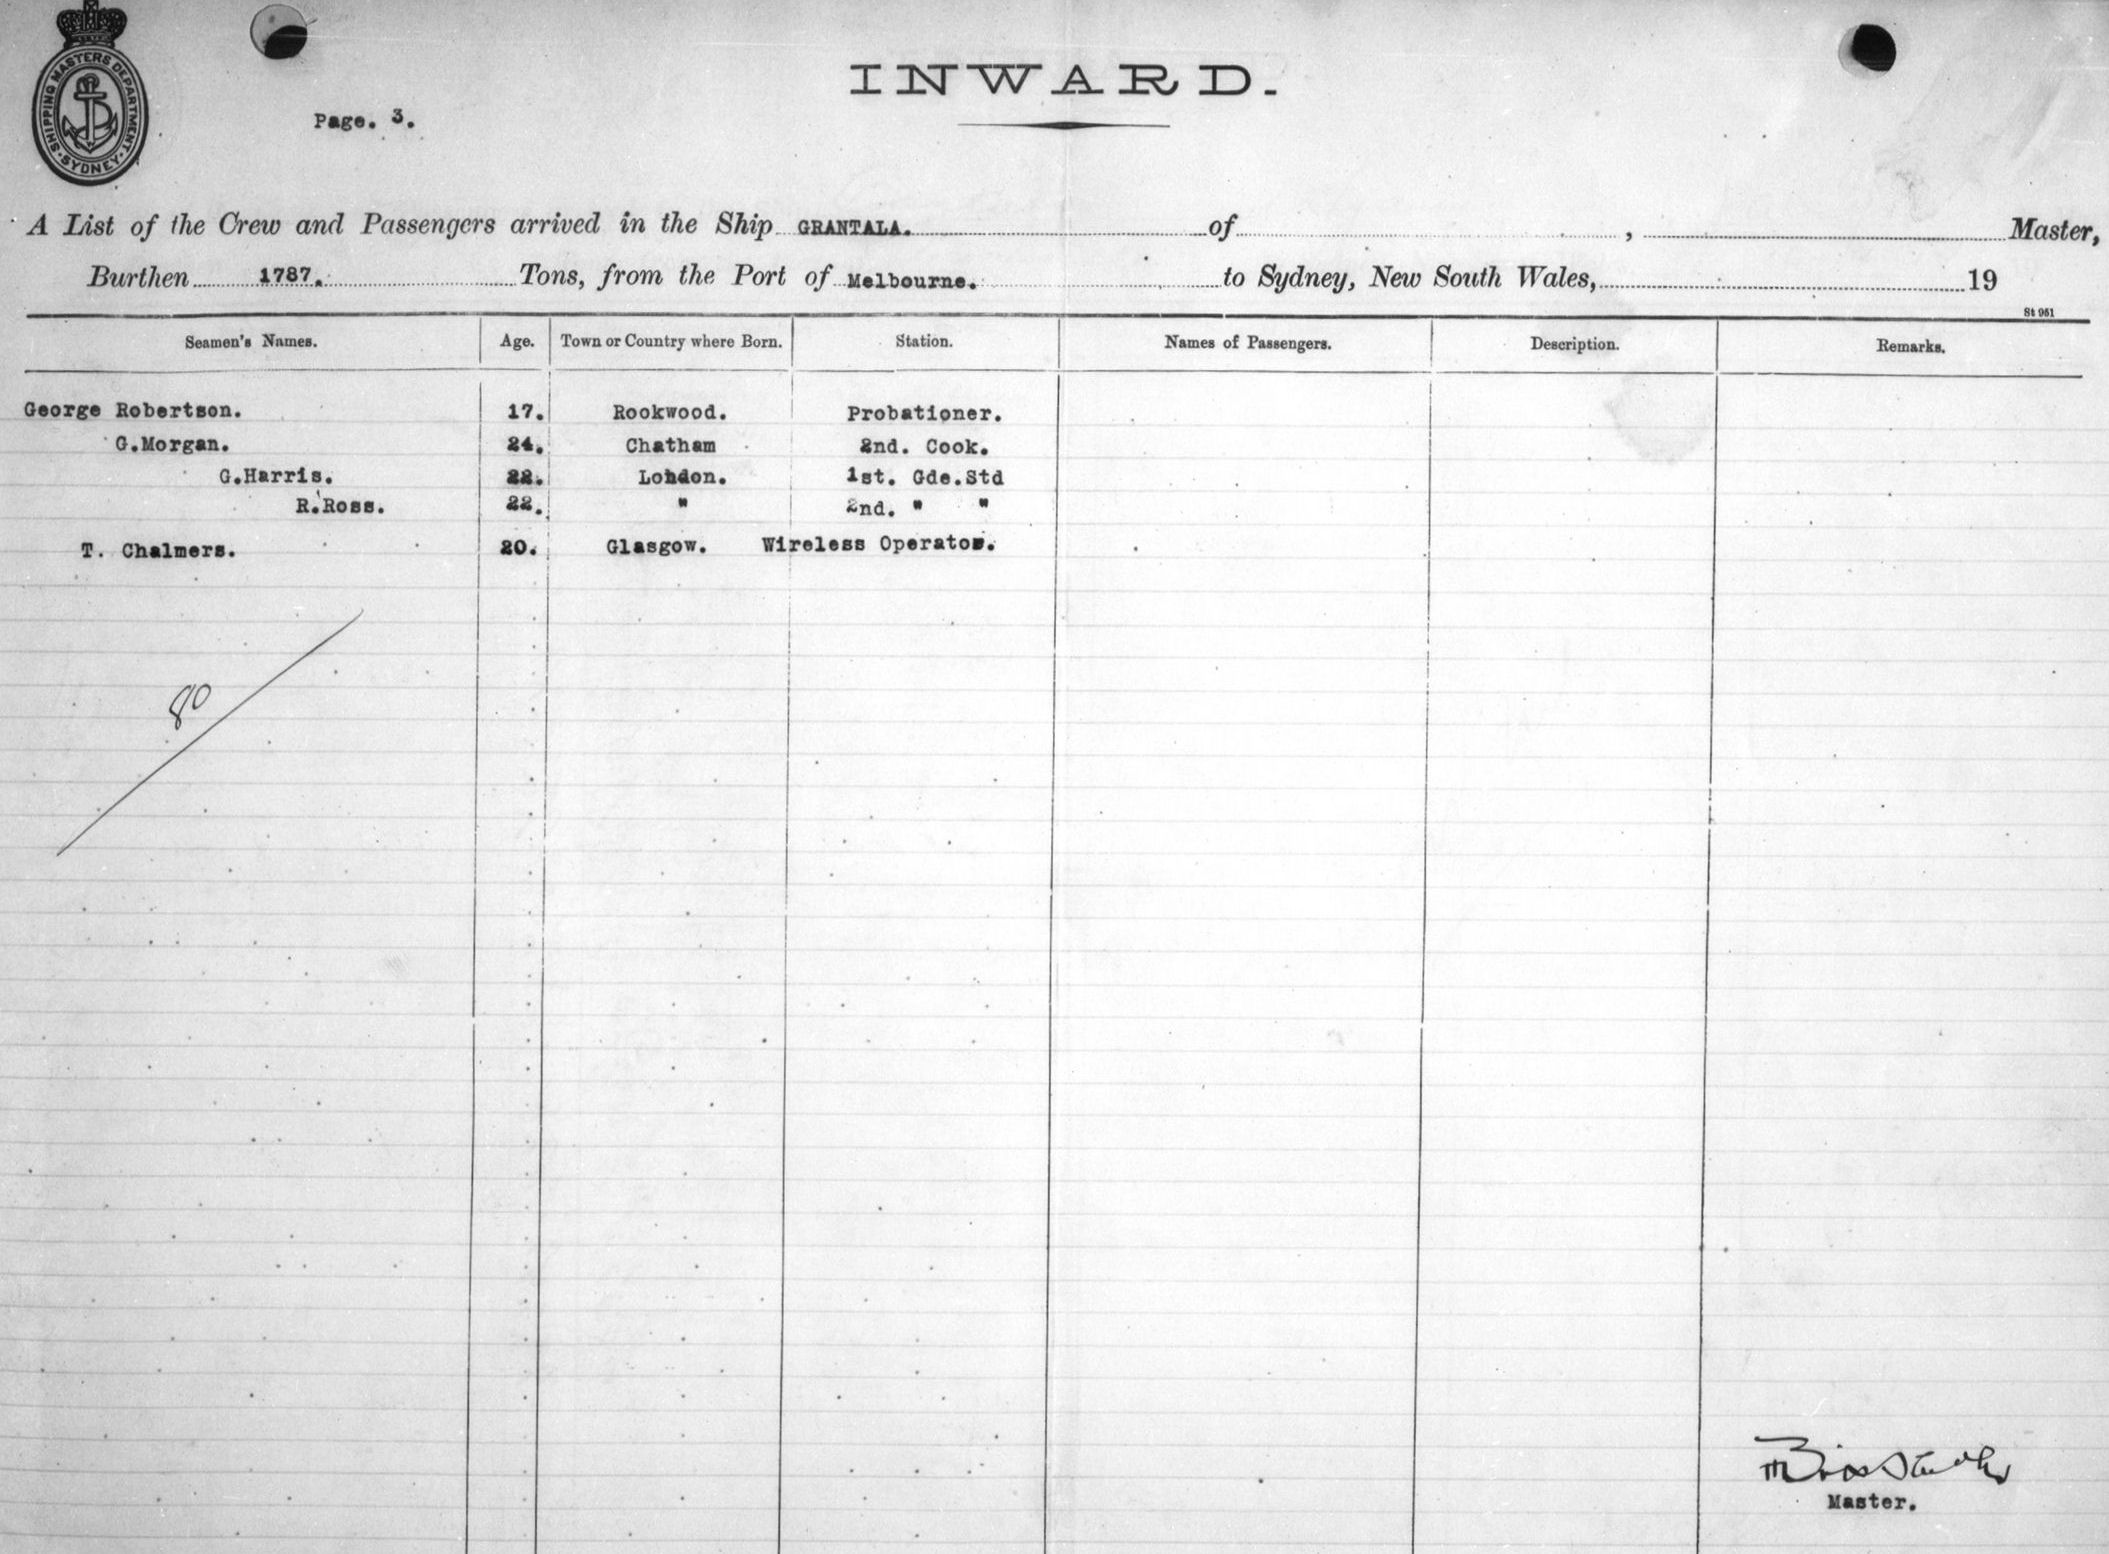 SHIPPING MASTERS DEPARTMENT · SYDNEY ·
INWARD.
Page. 3.
A List of the Crew and Passengers arrived in the Ship GRANTALA. of , Master,
Burthen 1787. Tons, from the Port of Melbourne. to Sydney, New South Wales, 19
St 951
Seamen's Names. Age. Town or Country where Born. Station. Names of Passengers. Description. Remarks.
George Robertson. 17. Rookwood. Probationer.
G.Morgan. 24. Chatham 2nd. Cook.
G.Harris. 22. London. 1st. Gde.Std
R.Ross. 22. " 2nd. " "
T. Chalmers. 20. Glasgow. Wireless Operator.
80
Master.